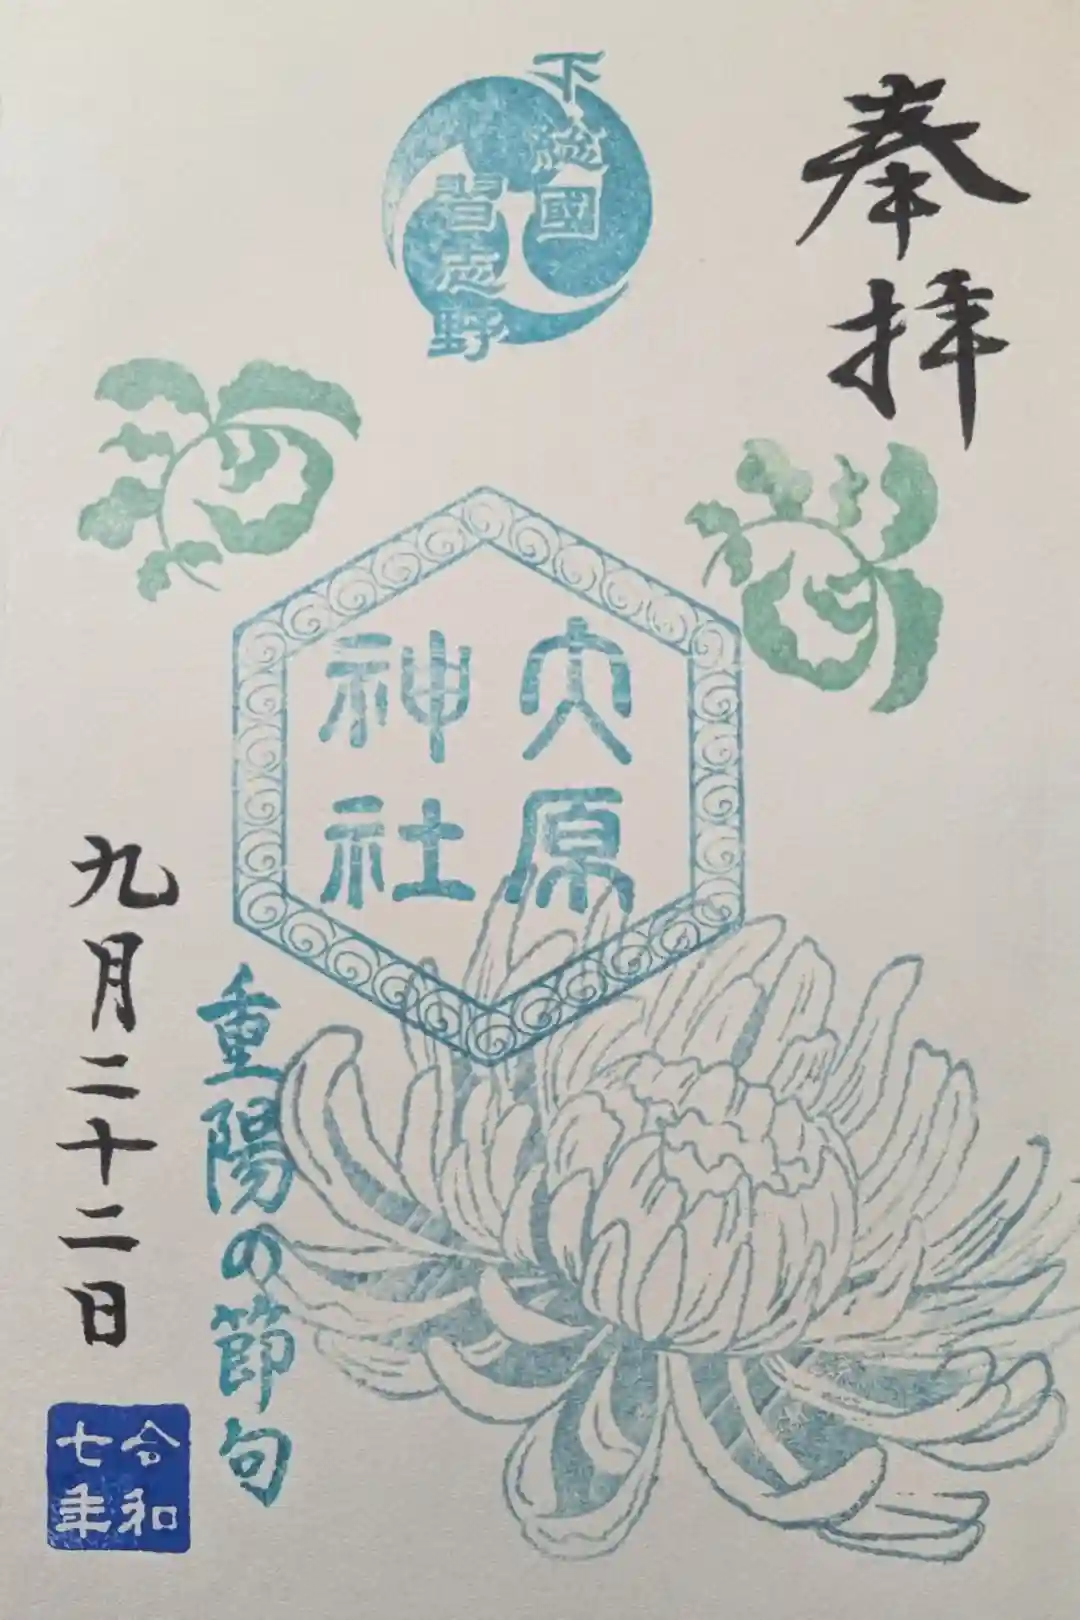 奉拝
下總國
習志野
大原
神社
重陽の節句
九月二十二日
令和
七年